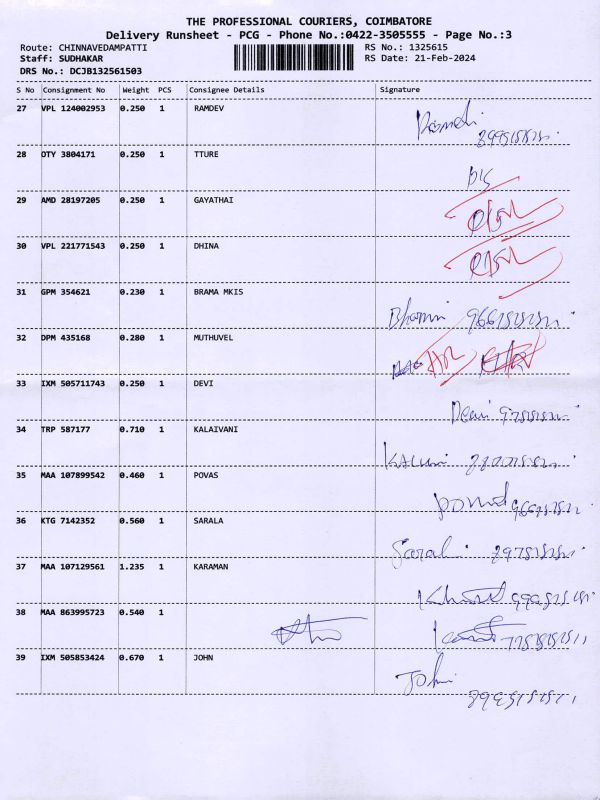 THE PROFESSIONAL COURIERS, COIMBATORE
Delivery Runsheet - PCG - Phone No.:0422-3505555 - Page No.:3
Route: CHINNAVEDAMPATTI RS No.: 1325615
Staff: SUDHAKAR RS Date: 21-Feb-2024
DRS No.: DCJB132561503
S No Consignment No Weight PCS Consignee Details Signature
27 VPL 124002953 0.250 1 RAMDEV
28 OTY 3804171 0.250 1 TTURE
29 AMD 28197205 0.250 1 GAYATHAI
30 VPL 221771543 0.250 1 DHINA
31 GPM 354621 0.230 1 BRAMA MKIS
32 DPM 435168 0.280 1 MUTHUVEL
33 IXM 505711743 0.250 1 DEVI
34 TRP 587177 0.710 1 KALAIVANI
35 MAA 107899542 0.460 1 POVAS
36 KTG 7142352 0.560 1 SARALA
37 MAA 107129561 1.235 1 KARAMAN
38 MAA 863995723 0.540 1
39 IXM 505853424 0.670 1 JOHN
John